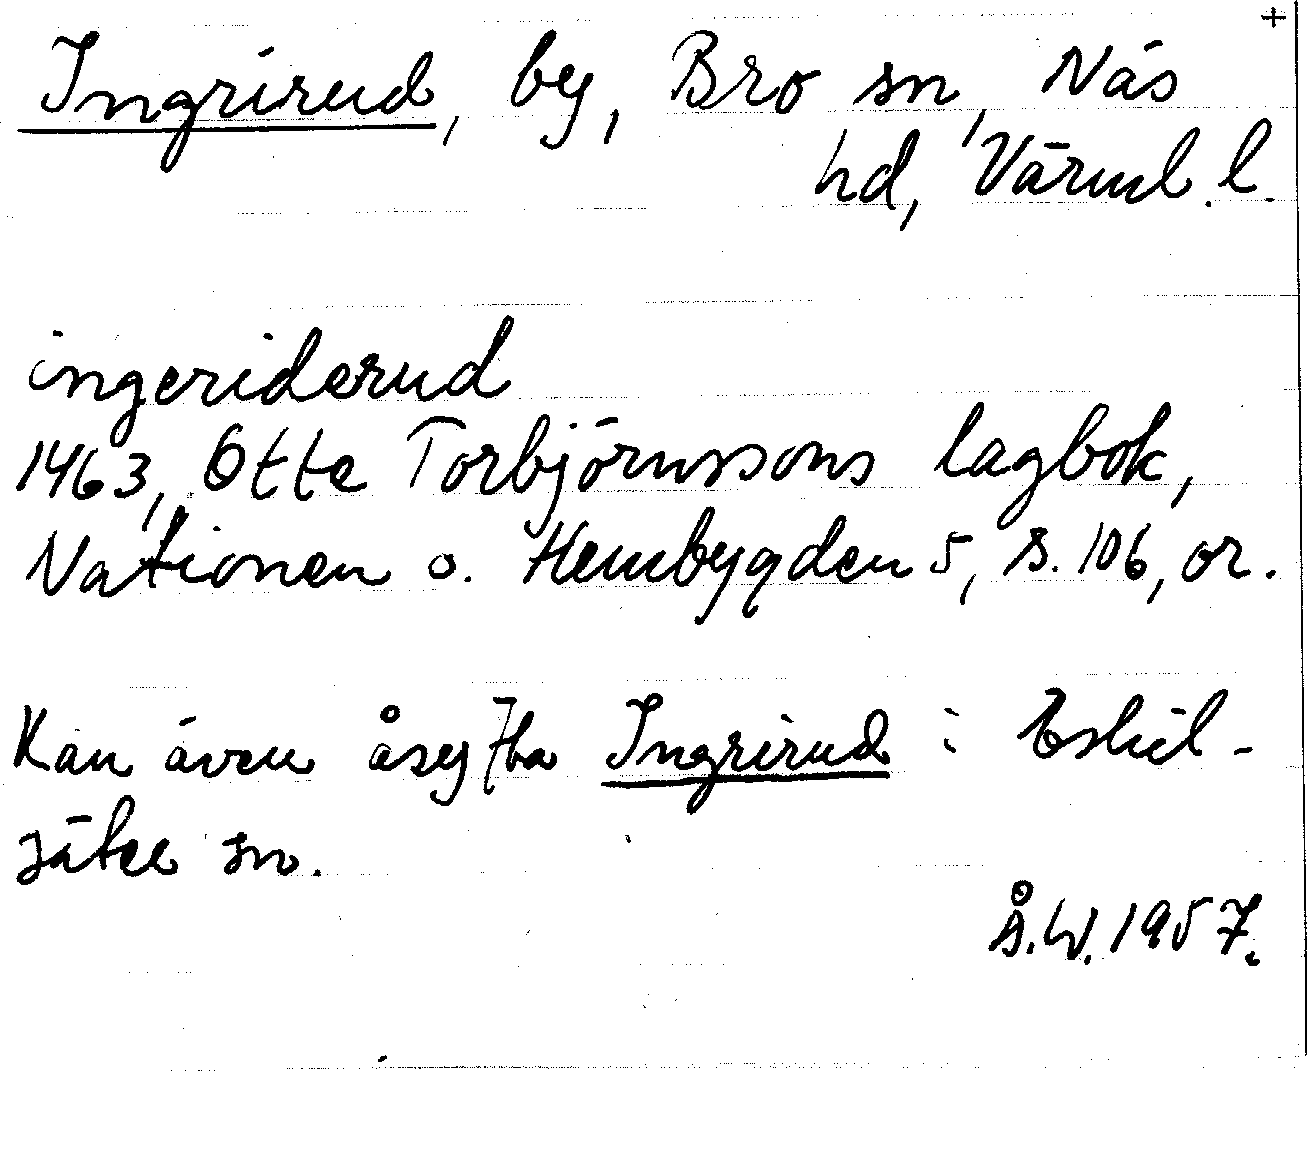 +
Ingrirud, by, Bro sn, Näs
hd, Värml. l.
ingeriderud
1463, Otte Torbjörnssons lagbok,
Nationen o. Hembygden 5, s. 106, or.
Kan även åsyfta Ingrirud i Eskil-
säter sn.
Å.W. 1957.